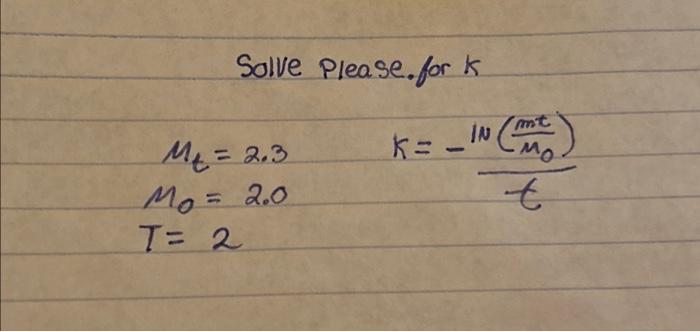 Solve Please. for K
Mt = 2.3
M0 = 2.0
T = 2
K = - ln (mt/M0) / t